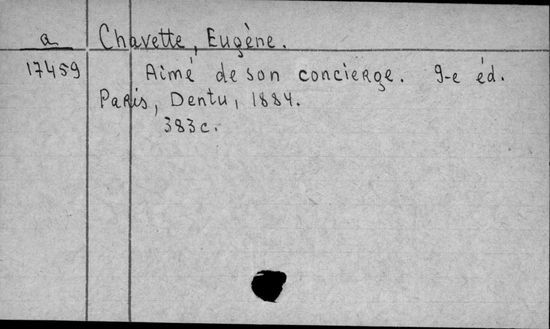 a Chavette, Eugène.
17459 Aimé de son concierge. 9-e éd.
Paris, Dentu, 1884.
383c.